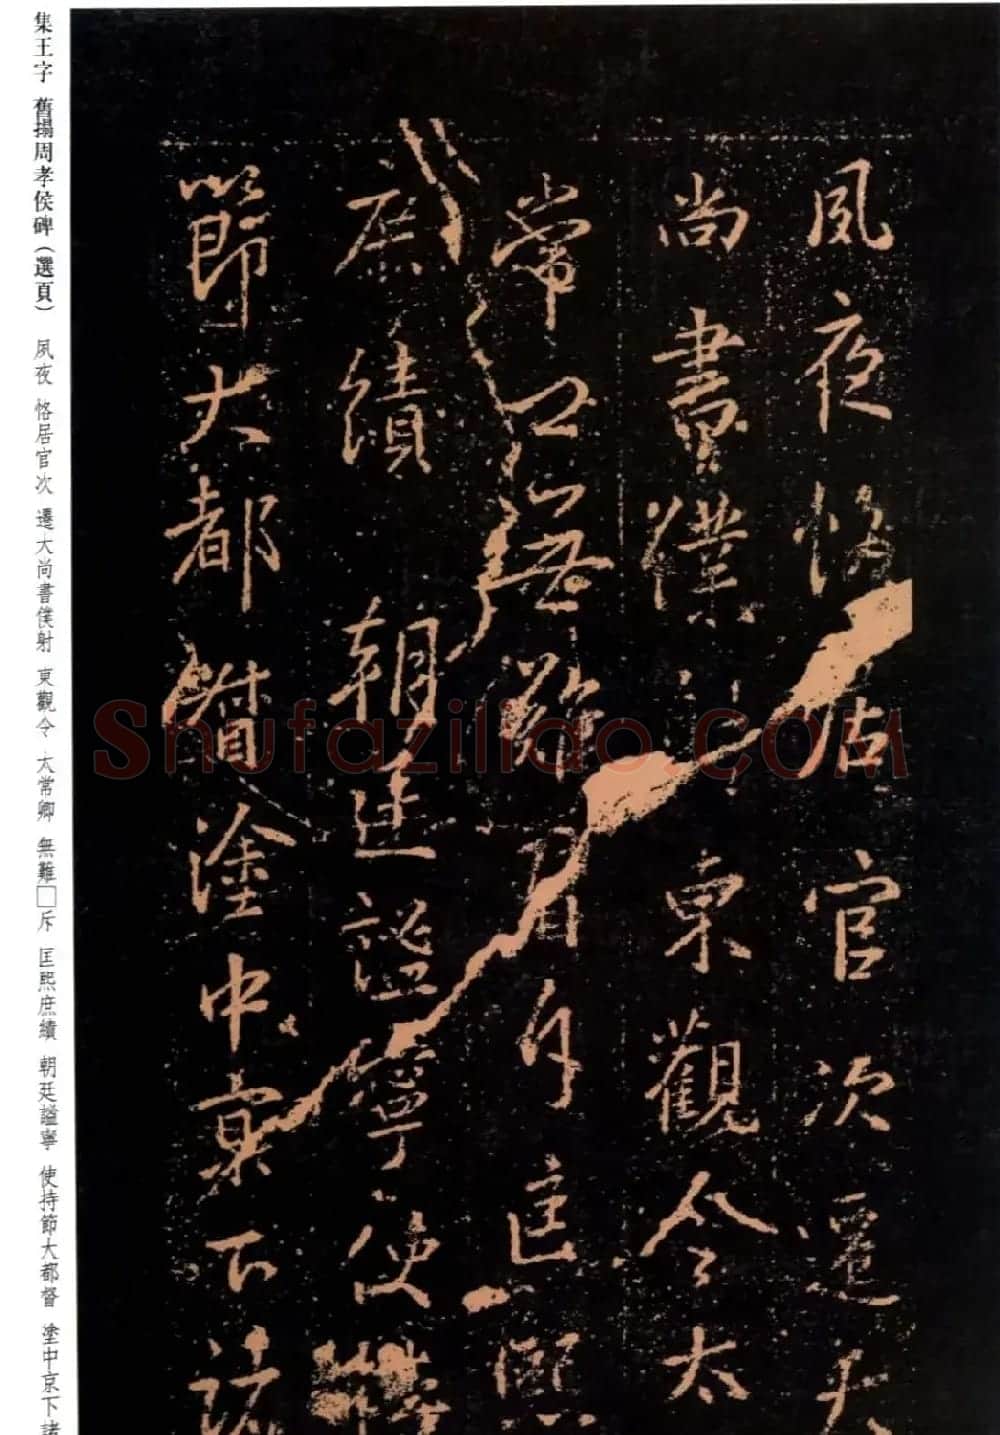 集王字 舊搨周孝侯碑（選頁） 夙夜 恪居官次 遷大尚書僕射 東觀令 太常卿 無難□斥 匡熙庶績 朝廷謐寧 使持節大都督 塗中京下諸
夙夜恪居官次遷大
尚書僕射東觀令太
常卿無難斥匡熙
庶績朝廷謐寧使持
節大都督塗中京下諸
Shufaziliao.COM